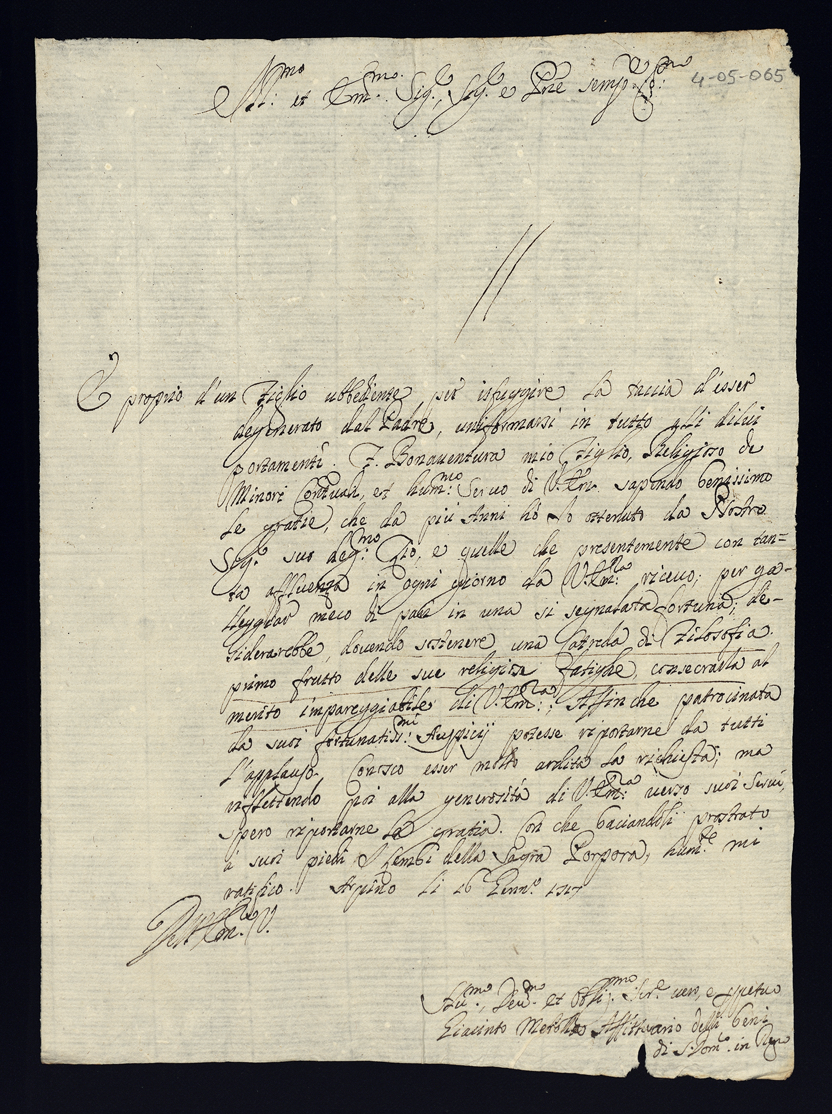 4-05-065
Em.mo et Rm.mo Sig.r, Sig.r e Pne semp. Col.mo
È proprio d'un Figlio ubbediente, per isfuggire la taccia d'esser
degenerato dal Padre, uniformarsi in tutto alli di lui
portamenti. F. Bonaventura mio Figlio, Religioso de
Minori Conuali, et hum.mo Seruo di V. Em. sapendo benissimo
le gratie, che da più Anni hò Io ottenuto da Nostro
Sig.re suo deg.mo Zio, e quelle che presentemente con tan=
ta affluenza in ogni giorno da V. Em.za riceuo; per ga-
reggiar meco di pari in una si segnalata fortuna; de-
siderarebbe, dovendo sostenere una Catreda di Filosofia
primo frutto delle sue religiose fatighe, consecrarla al
merito impareggiabile di V. Em.za; Affinche patrocinata
da suoi fortunatiss.mi Auspicij potesse riportarne da tutti
l'applauso. Conosco esser molto ardita la richiesta; ma
riflettendo poi alla generosità di V. Em.za verso suoi Serui,
spero riportarne la gratia. Con che baciandoli prostrato
à suoi piedi i lembi della Sagra Porpora, hum.te mi
ratifico. Arpino li 16 Genn.o 1717
Dell' Em.za V.
Hu.mo, Deu.mo et Obli.mo Ser.e vero, e ppetuo
Giacinto Affittuario delli beni
di S. Dom.o in Regno